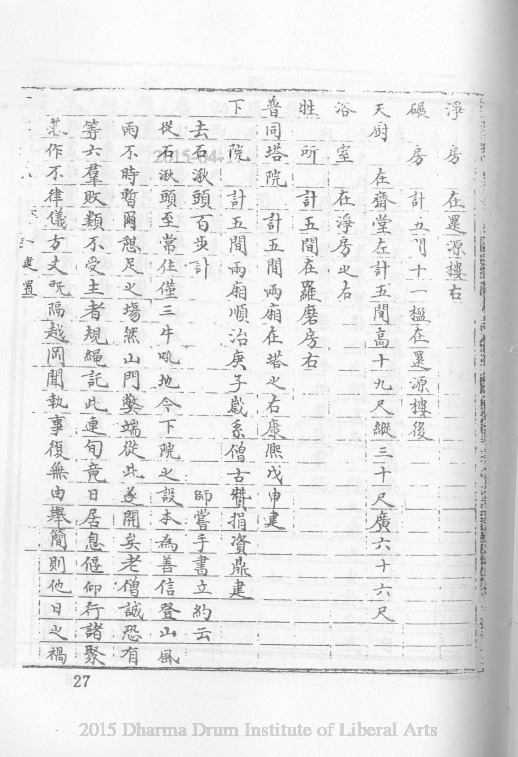 淨房 在還源樓右
碾房 計五間十一楹在還源樓後
天厨 在齋堂左計五間高十九尺縱三十尺廣六十六尺
浴室 在淨房之右
牲所 計五間在羅磨房右
普同塔院 計五間兩廂在塔之右康熙戊申建
下院 計五間兩廂順治庚子歲系僧古攢捐資鼎建
去石湫頭百步計 師嘗手書立約云
從石湫頭至常住僅三牛吼地今下院之設本為善信登山風
雨不時暫爾憩足之場然山門弊端從此遂開矣老僧誠恐有
等六羣敗類不受主者規繩託此連旬竟日居息偃仰行諸聚
作不律儀方丈既隔越罔聞執事復無由舉簡則他日之禍
建置
27
2015-04-1
2015 Dharma Drum Institute of Liberal Arts